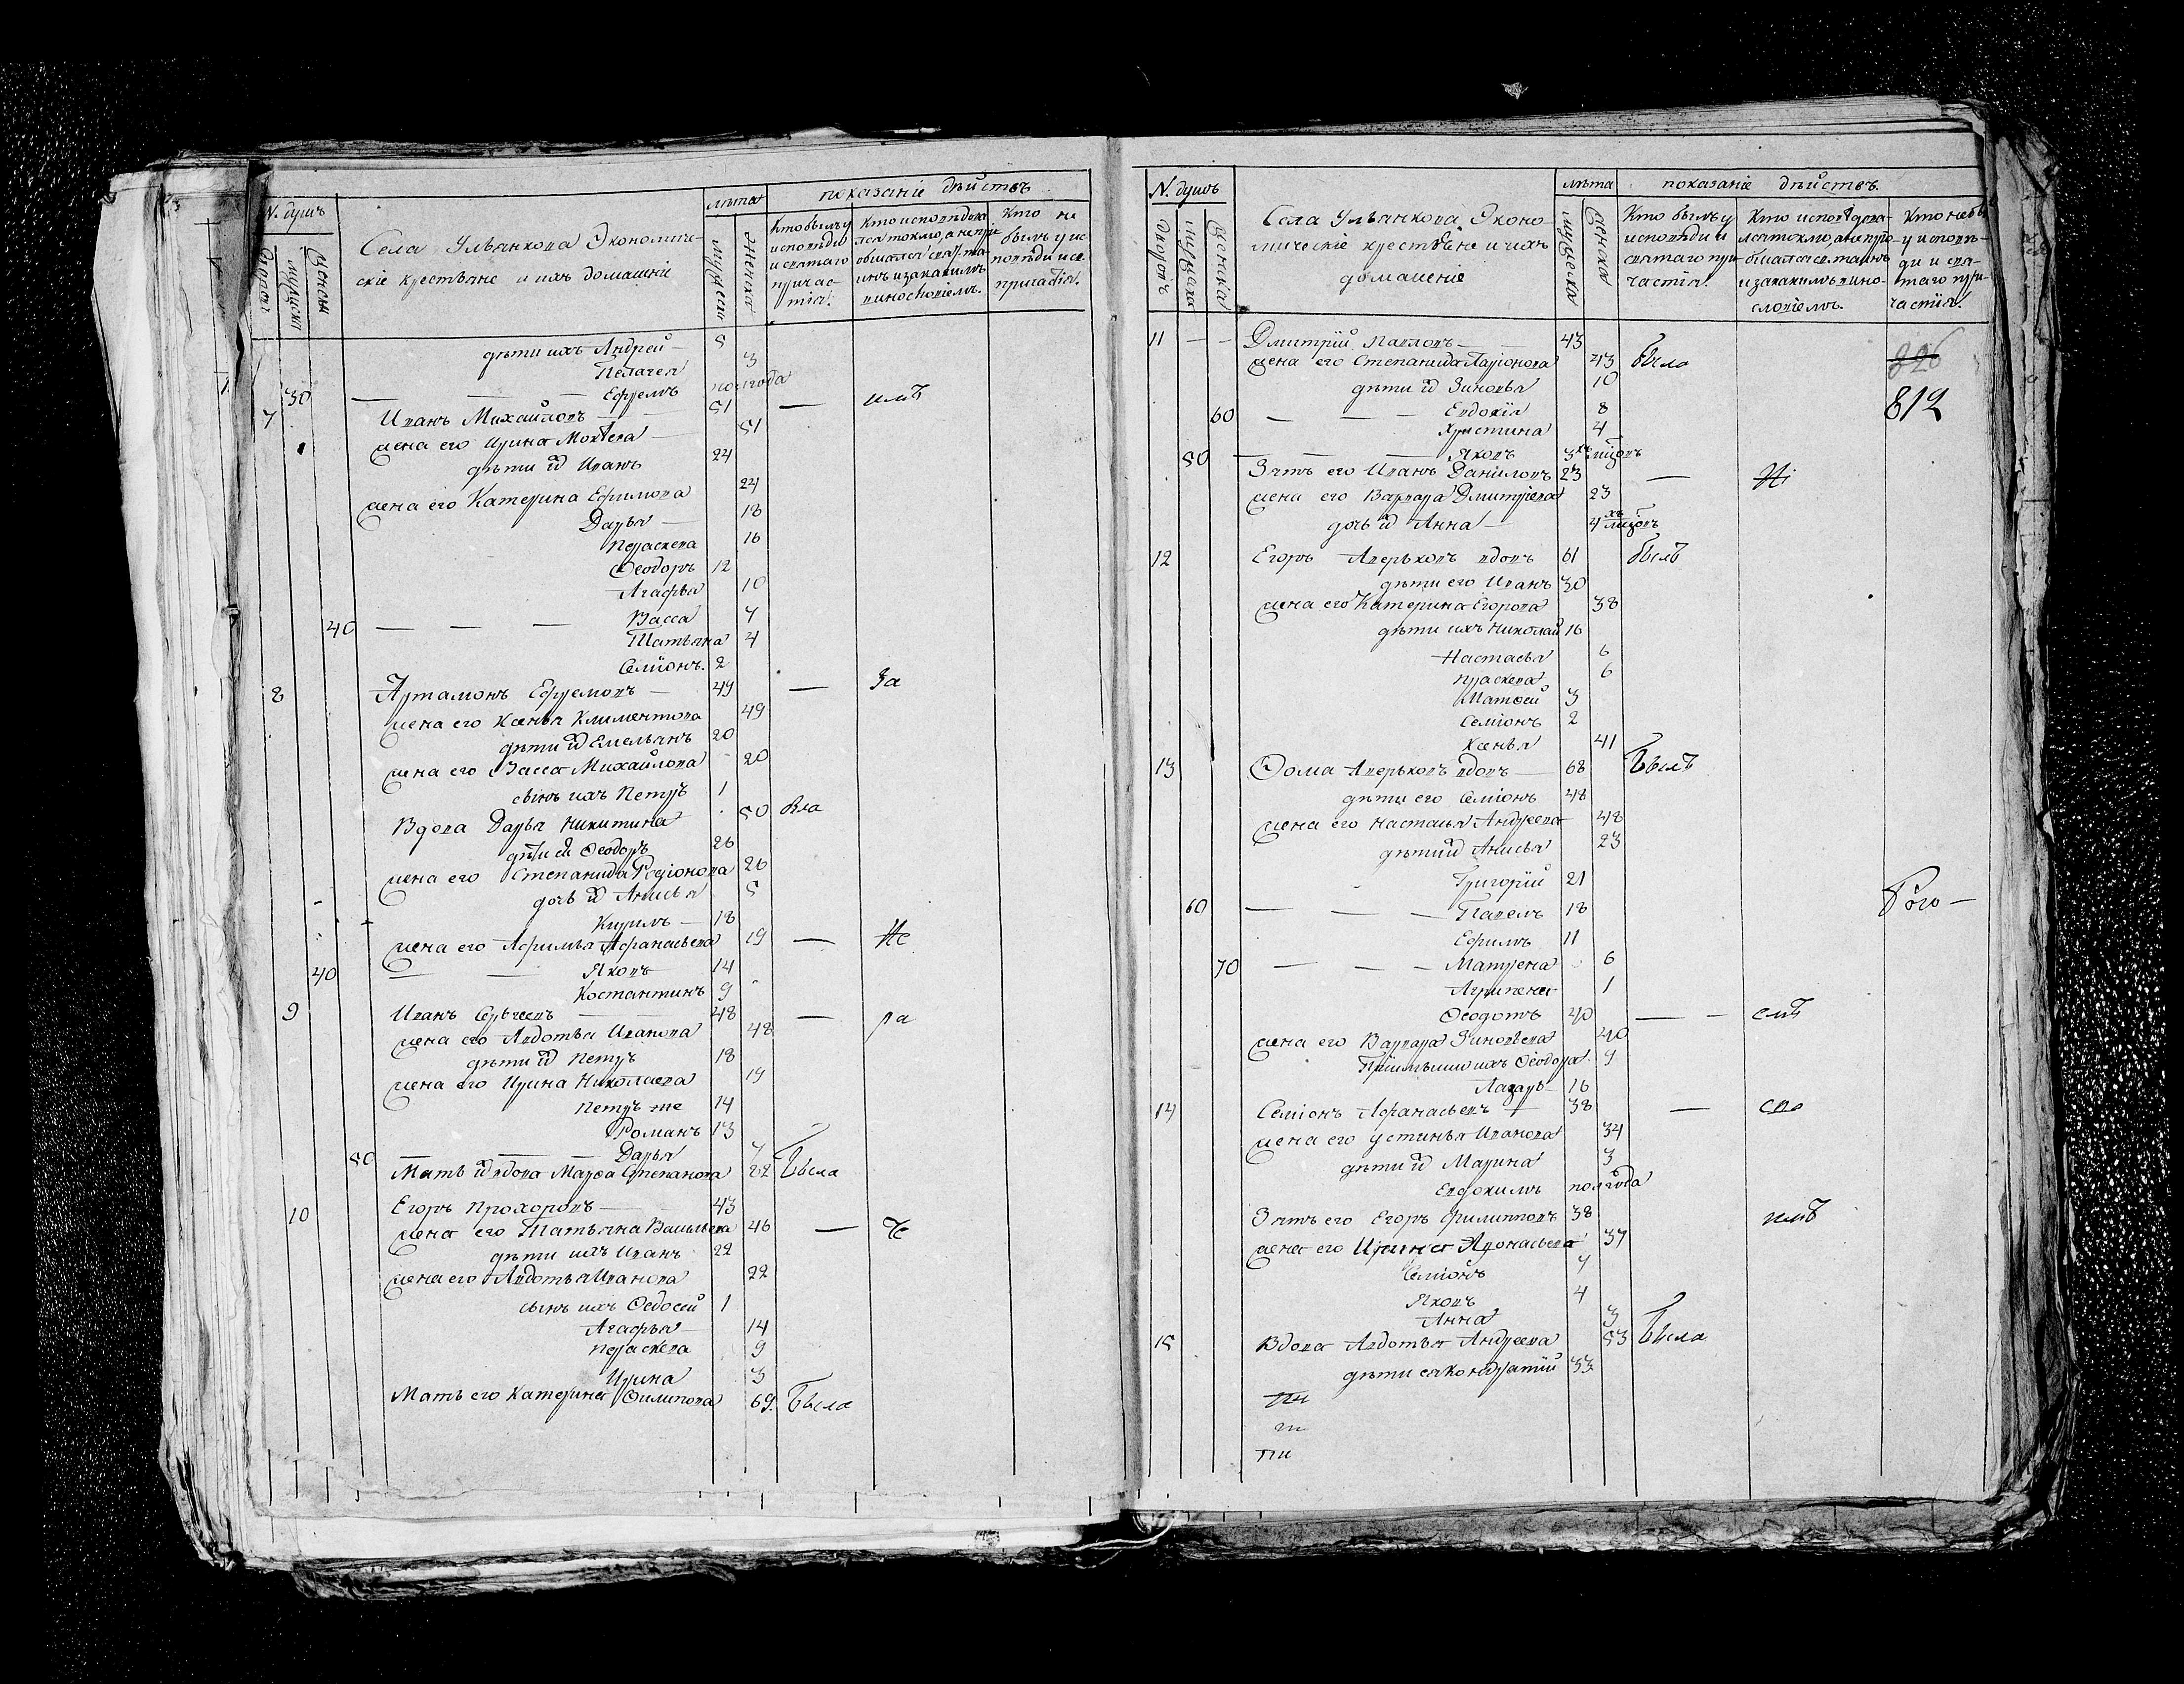 N. душъ
лѣта
показаніе дѣйствъ
Села Ульянкова Экономиче-
скіе крестьяне и ихъ домашніе
Кто былъ у исповѣди и святаго причас-тія.
Кто исповѣдова лся токмо, а не при общался
Кто не былъ у ис повѣди и св. причастія.
дѣти ихъ Андрей 5
Пелагея 3
30 — — — Ефремъ полгода
7 Иванъ Михайловъ 51 —
жена его Ирина Мокѣева 51
дѣти их Иванъ 24
жена его Катерина Ефимова 24
Дарья 18
Праскева 16
Ѳеодоръ 12
Агафья 10
40 — — — Васса 7
Татьяна 4
Семіонъ. 2
8 Артамонъ Ефремовъ — 49 — за
жена его Ксенья Климентова 49
дѣти их Емельянъ 20
жена его Васса Михайлова 20
сынъ ихъ Петръ 1
Вдова Дарья Никитина 50
дѣти ея Ѳеодоръ 26
жена его Степанида Родіонова 26
дочь их Анисья 5
Кирилъ — 18
жена его Афимья Афанасьева 19 — Не
40 — — Яковъ 14
Костантинъ 9
9 Иванъ Сергеевъ 48 — ра
жена его Авдотья Иванова 48
дѣти их Петръ 18
жена его Ирина Николаева 19
Петръ же 14
Романъ 13
50 — — — Дарья 7
Мать их вдова Марѳа Степанова 72 Была
10 Егоръ Прохоровъ 43
жена его Татьяна Васильева 46 —
дѣти ихъ Иванъ 22
жена его Авдотья Иванова 22
сынъ ихъ Ѳедосей 1
Агафья 14
Праскева 9
Ирина 3
Мать его Катерина Филипова 69. Была
N. душъ
лѣта
показаніе дѣйствъ.
Села Ульянкова Эконо
мическіе крестьяне и ихъ
домашніе
Кто былъ у исповѣди и святаго при частія.
Кто исповѣдова-
Кто не былъ у исповѣ-ди и свя-таго при-частія.
11 — — Дмитрій Павловъ 43
226
жена его Степанида Ларіонова 43 была
дѣти их Зиновья 10
60 — — — Евдокія 8
812
Христина 4
50 — — — Яковъ
Зять его Иванъ Даниловъ 23 —
жена его Варвара Дмитріева 23
дочь их Анна — 4
12 Егоръ Аверьковъ вдовъ 61 былъ
дѣти его Иванъ 30
жена его Катерина Егорова 38
дѣти ихъ Николай 16
Настасья 6
Праскева 6
Матѳей 3
Семіонъ 2
Ксенья 41
13 Ѳома Аверьковъ вдовъ 68 Былъ
дѣти его Семіонъ 48
жена его Настасья Андреева 48
дѣти их Анисья 23
Григорій 21
60 — — — Павелъ 18
Рого —
Ефимъ 11
70 — — — Матрена 6
Агрипена 1
Ѳеодотъ 40 — —
жена его Варвара Зиновьева 40
Пріимыши ихъ Ѳеодора 9
Лазарь 16
14 Семіонъ Афанасьевъ 38 —
жена его Устинья Иванова 34
дѣти их Марина 3
Евдокимъ полгода
Зять его Егоръ Филипповъ 38
жена его Ирина Афонасьева 37
Семіонъ 7
Яковъ 4
Анна 3
15 Вдова Авдотья Андреева 53 Была
дѣти ея Кондратій 33